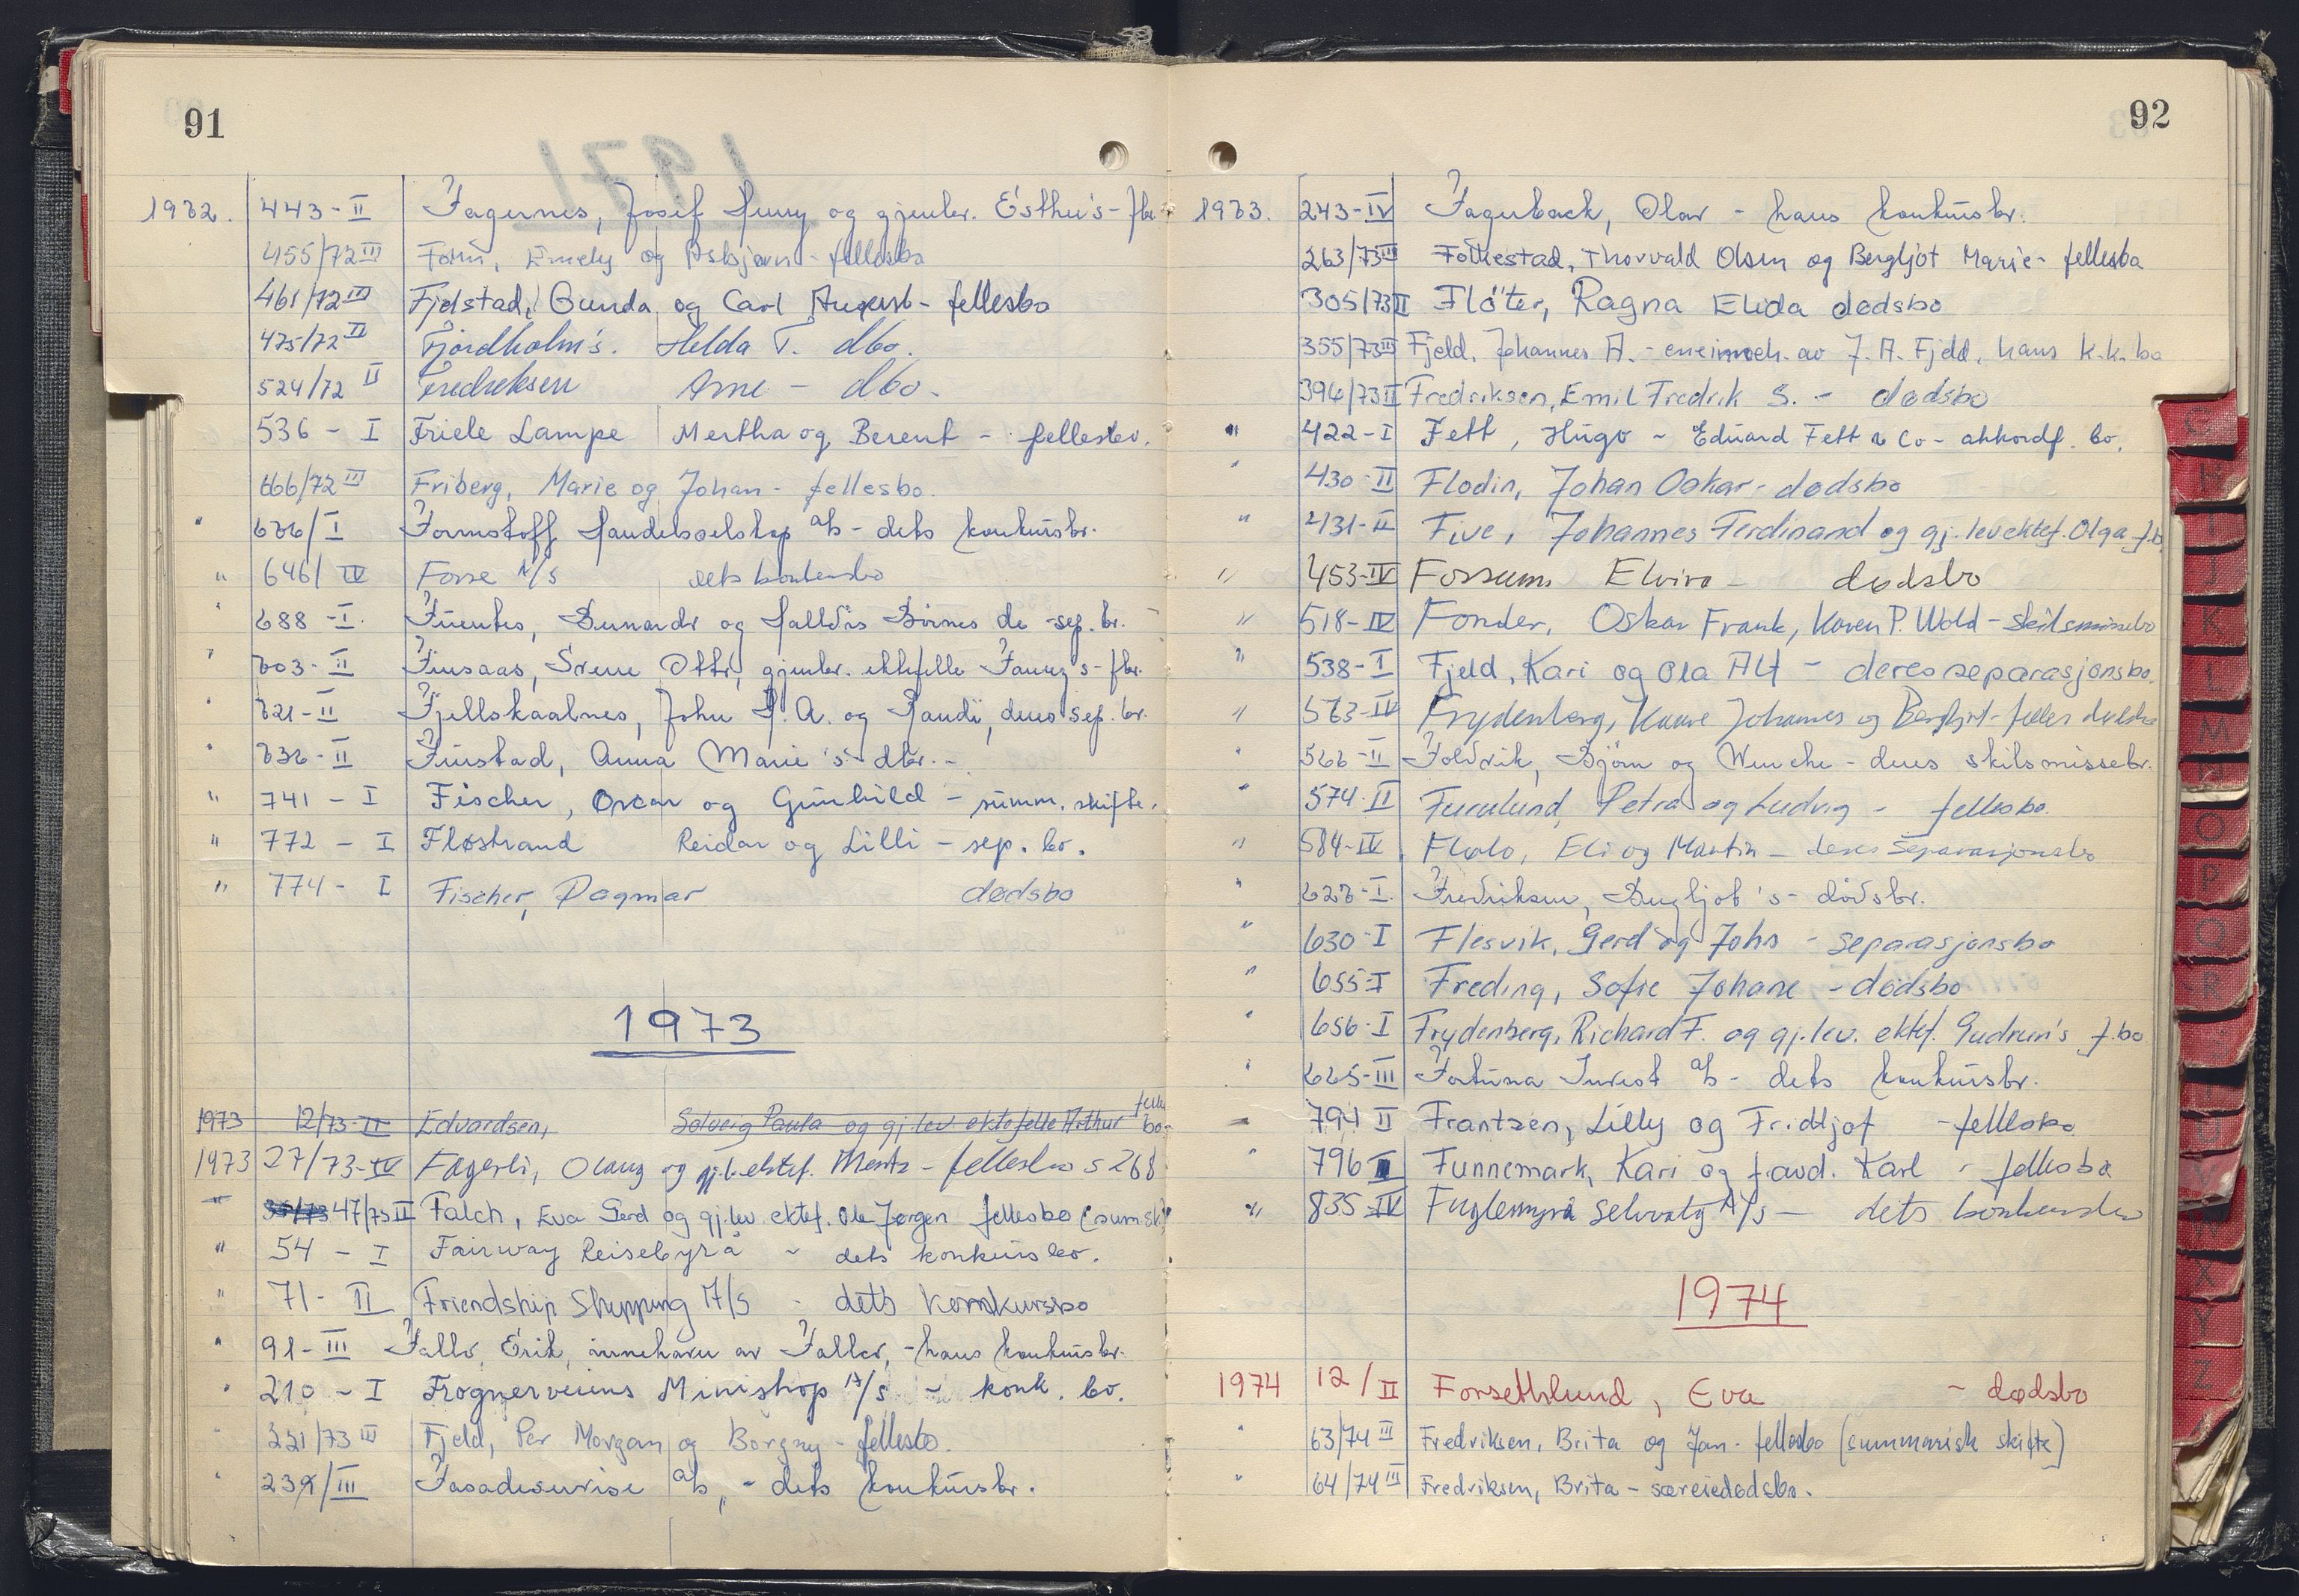 91
1972. 443-II Fagernes, Josef Henry og gjenlev. Esther's - fbo
455/72 III Fohn, Emely og Asbjørn - fellesbo
461/72 III Fjelstad, Gunda og Carl August - fellesbo
475/72 II Fjordholm's. Helda T. dbo.
524/72 II Fredriksen Arne - dbo.
536 - I Friele Lampe Mertha og Berent - fellesbo.
666/72 III Friberg, Marie og Johan - fellesbo.
" 636/I Formstoff Handelsselskap a/s - dets konkursbo.
" 646/IV Forse A/S dets konkursbo
" 688 - I. Fuentes, Bernardo og Halldis Birnes de - sep. bo.
" 703 - II Finsaas, Sverre Otto, gjenlev. ektefelle Fanny's - fbo.
" 721 - II Fjellskaalnes, John H. A. og Randi, deres sep. bo.
" 736 - II Furstad, Anna Marie's dbo. -
" 741 - I Fischer, Oscar og Gunhild - summ. skifte.
" 772 - I Fløstrand Reidar og Lilli - sep. bo.
" 774 - I Fischer, Dagmar dødsbo
1973
1973 12/73-IV Edvardsen, Solveig Paula og gj. lev. ektefelle Arthur felles bo.
1973 27/73-IV Fagerli, Olaug og gj.l. ektef. Mentz - fellesbo s 268
" 47/73 II Falch, Eva Gerd og gj.lev. ektef. Ole Jørgen fellesbo (sum sk)
" 54 - I Fairway Reisebyrå - dets konkursbo.
" 71 - II Friendship Shipping A/S - dets konkursbo
" 91 - III Faller, Erik, innehaver av Faller, - hans konkursbo.
" 210 - I Frognerveiens Minishop A/S - konk. bo.
" 221/73 III Fjeld, Per Morgan og Borgny - fellesbo.
" 239/III Fasadeservise a/s, - dets konkursbo.
92
1973. 243-IV Fagerback, Olav - hans konkursbo.
263/73 III Folkestad, Thorvald Olsen og Bergljot Marie - fellesbo
305/73 II Flöter, Ragna Elida dødsbo
355/73 III Fjeld, Johannes A. - eneinneh. av J. A. Fjeld, hans k.k. bo
396/73 II Fredriksen, Emil Fredrik S. - dødsbo
" 422-I Fett, Hugo - Eduard Fett & Co - akkordf. bo.
" 430-II Flodin, Johan Oskar - dødsbo
" 431-II Five, Johannes Ferdinand og gj. lev ektef. Olga f.b.
" 453-IV Fossum Elvira - dødsbo
" 518-IV Fonder, Oskar Frank, Karen P. Wold - skilsmissebo
" 538-I Fjeld, Kari og Ola Alf - deres separasjonsbo.
" 563-IV Frydenberg, Kaare Johannes og Bergljot - felles dødsbo
" 566-II Foldvik, Bjørn og Wenche - deres skilsmissebo.
" 574-II Furulund, Petra og Ludvig - fellesbo.
" 584-IV Flølo, Eli og Martin - deres separasjonsbo
" 627-I. Fredriksen, Bergljot's - dødsbo.
" 630-I Flesvik, Gerd og John - separasjonsbo
" 655-I Freding, Sofie Johane - dødsbo
" 656-I Frydenberg, Richard F. og gj.lev. ektef. Gudrun's f.bo
" 665-III Fortuna Invest a/s - dets konkursbo.
" 794 II Frantzen, Lilly og Fridtjof - fellesbo
" 796 I Funnemark, Kari og f.avd. Karl - fellesbo
" 835-IV Fuglemyra Selvvalg A/S - dets konkursbo
1974
1974 12/II Forsethlund, Eva - dødsbo
" 63/74 III Fredriksen, Brita og Jan - fellesbo (summarisk skifte)
" 64/74 III Fredriksen, Brita - særeiedødsbo.
G
H
I
J
K
L
M
N
O
P
Q
R
U
V
W
X
Y
Z